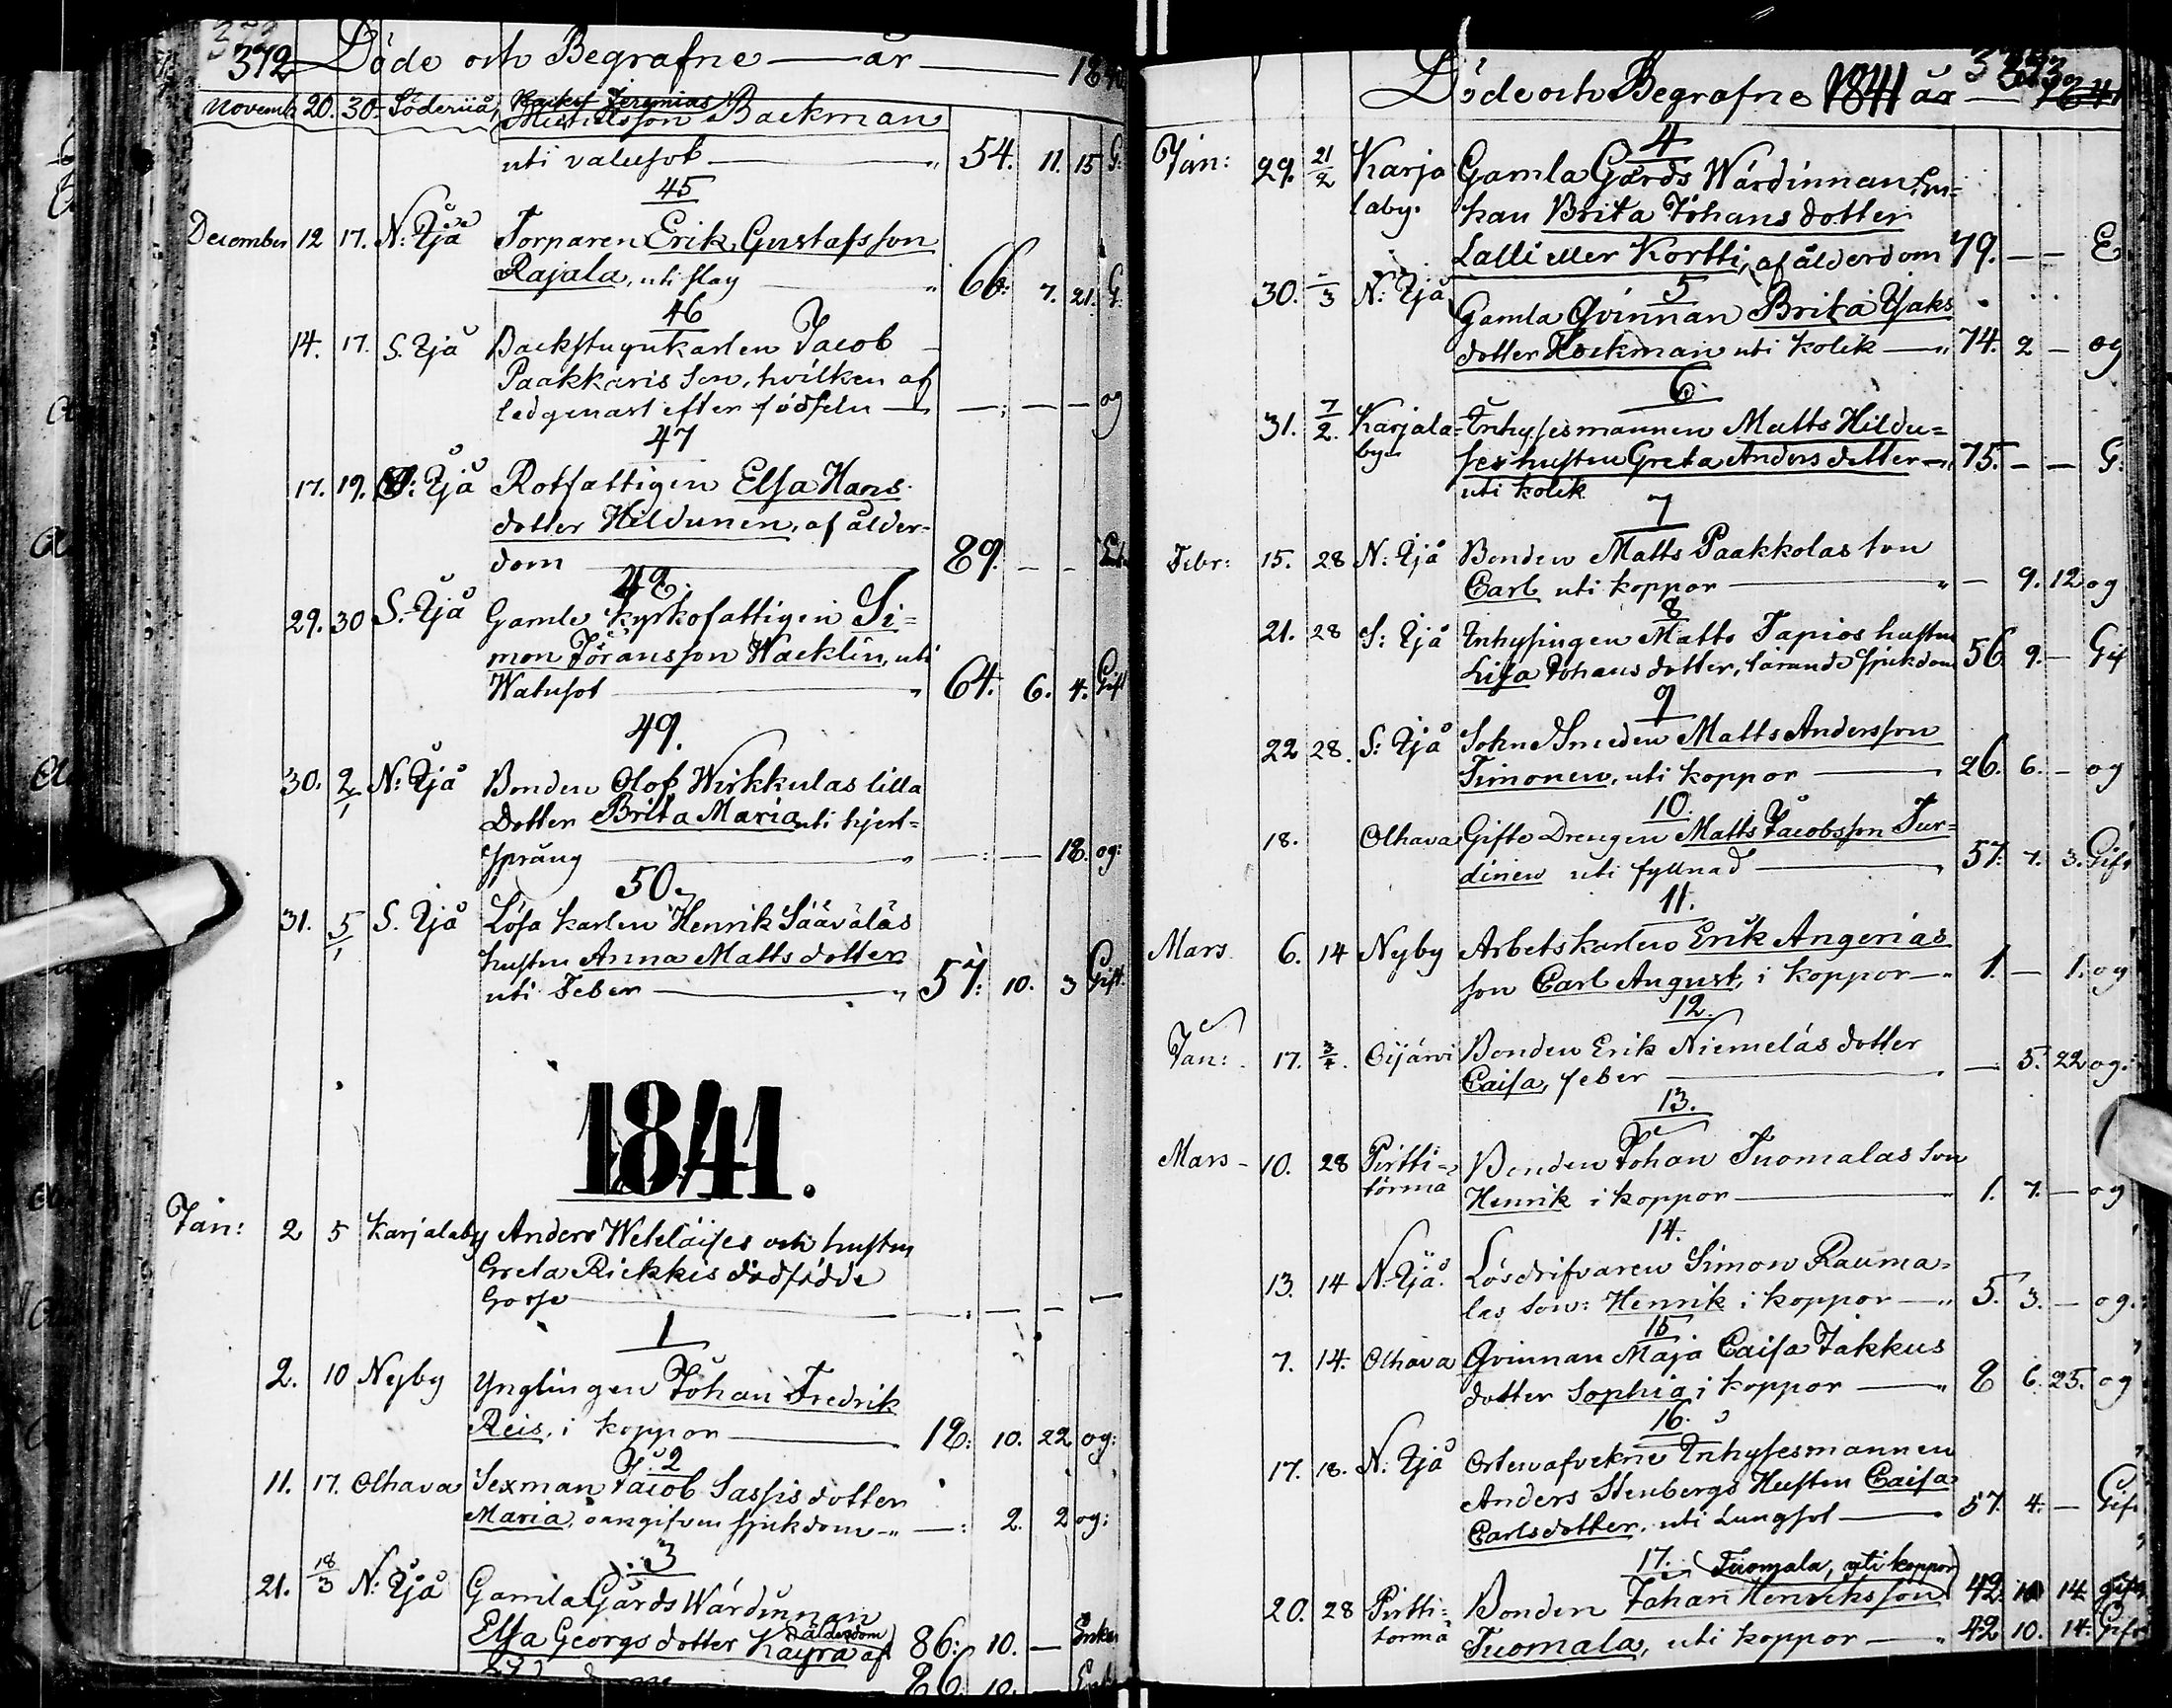 372 Döde och Begrafne — år — 1840
Novemb 20. 30. Söderijå,
Michelsson Backman
uti vatusot — " 54. 11. 15 G:
45
December 12 17. N: Ijå Torparen Erik Gustafsson
Rajala, uti slag " 66: 7. 21. G:
46
14. 17. S. Ijå Backstugukarlen Jacob
Paakkaris son, hvilken af
ledgenast efter födseln — —: — — og
47
17. 19. Ijå Rotfattigen Elsa Hans
dotter Hildunen, af ålder-
dom — 89. — —
48.
29. 30 S. Ijå Gamle Kyrkofattigen Si=
mon Jöransson Wacklin, uti
Watusot — " 64. 6. 4. Gift
49.
30. 2/1 N: Ijå Bonden Olof Wirkkulas lilla
Dotter Brita Maria uti hjert=
språng — " —: — 18. og:
50.
31. 5/1 S. Ijå Lösa karlen Henrik Sääväläs
hustru Anna Mattsdotter
uti Feber — " 57: 10. 3 Gift.
1841.
Jan: 2 5 Karjalaby Anders Weteläises och hustru
Greta Riekkis dödfödde
Gosse — —: — — —
1
2. 10 Nyby Ynglingen Johan Fredrik
Reis, i koppor — 18: 10. 22 og:
2
11. 17. Olhava Sexman Jacob Sassis dotter
Maria, oangifven sjukdom " —: 2. 2 og:
3
21. 18/3 N: Ijå Gamla Gårds Wärdinnan
Elsa Georgsdotter Kayra af ålderdom 86: 10. — Enka
86. 10.
Döde och Begrafne 1841 år —
4
Jan: 29. 21/2 Karja Gamla Gårds Wärdinnan En=
laby. kan Brita Johansdotter
Lalli eller Kortti, af ålderdom 79. — — E
5
30. -/3 N: Ijå Gamla Qvinnan Brita Isaks
dotter Hockman uti kolik — " 74. 2 — og
6
31. 7/2. Karjala= Inhysesmannen Matts Hildu=
by. ses hustru Greta Andersdotter — " 75. — — G:
uti kolik
7
Febr: 15. 28 N: Ijå Bonden Matts Paakkolas son
Carl uti koppor — " — 9. 12 og
8
21. 28 S: Ijå Inhysingen Matts Tapios hustru
Lisa Johansdotter, tärande sjukdom 56 9. — Gif
9
22 28. S: Ijå Sokne Smeden Matts Andersson
Simonen, uti koppor — " 26. 6. — og
10.
18. Olhava Gifte Drengen Matts Jacobsson Tur=
dinen uti fyllnad — " 57: 7. 3. Gift
11.
Mars 6. 14 Nyby Arbetskarlen Erik Angerias
son Carl August, i koppor — " 1. — 1. og
12.
Jan: 17. 3/4. Oijärvi Bonden Erik Niemeläs dotter
Caisa, feber — " —. 5. 22 og:
13.
Mars - 10. 28 Pirtti= Bonden Johan Tuomalas son
törmä Henrik i koppor — " 1. 7. — og
14.
13. 14 N: Ijå. Lösdrifvaren Simon Rauma=
las son: Henrik i koppor — " 5. 3. — og.
15
7. 14. Olhava Qvinnan Maja Caisa Jakkus
dotter Sophia i koppor — " 8 6. 25. og
16.
17. 18. N: Ijå Inhysesmannen
Anders Stenbergs Hustru Caisa
Carlsdotter, uti Lungsot — 57. 4. — Gift
17. (Tuomala, uti koppor)
20. 28 Pirtti= Bonden Johan Henriksson 42 10 14 gift
törmä Tuomala, uti koppor — " 42 10. 14. Gift